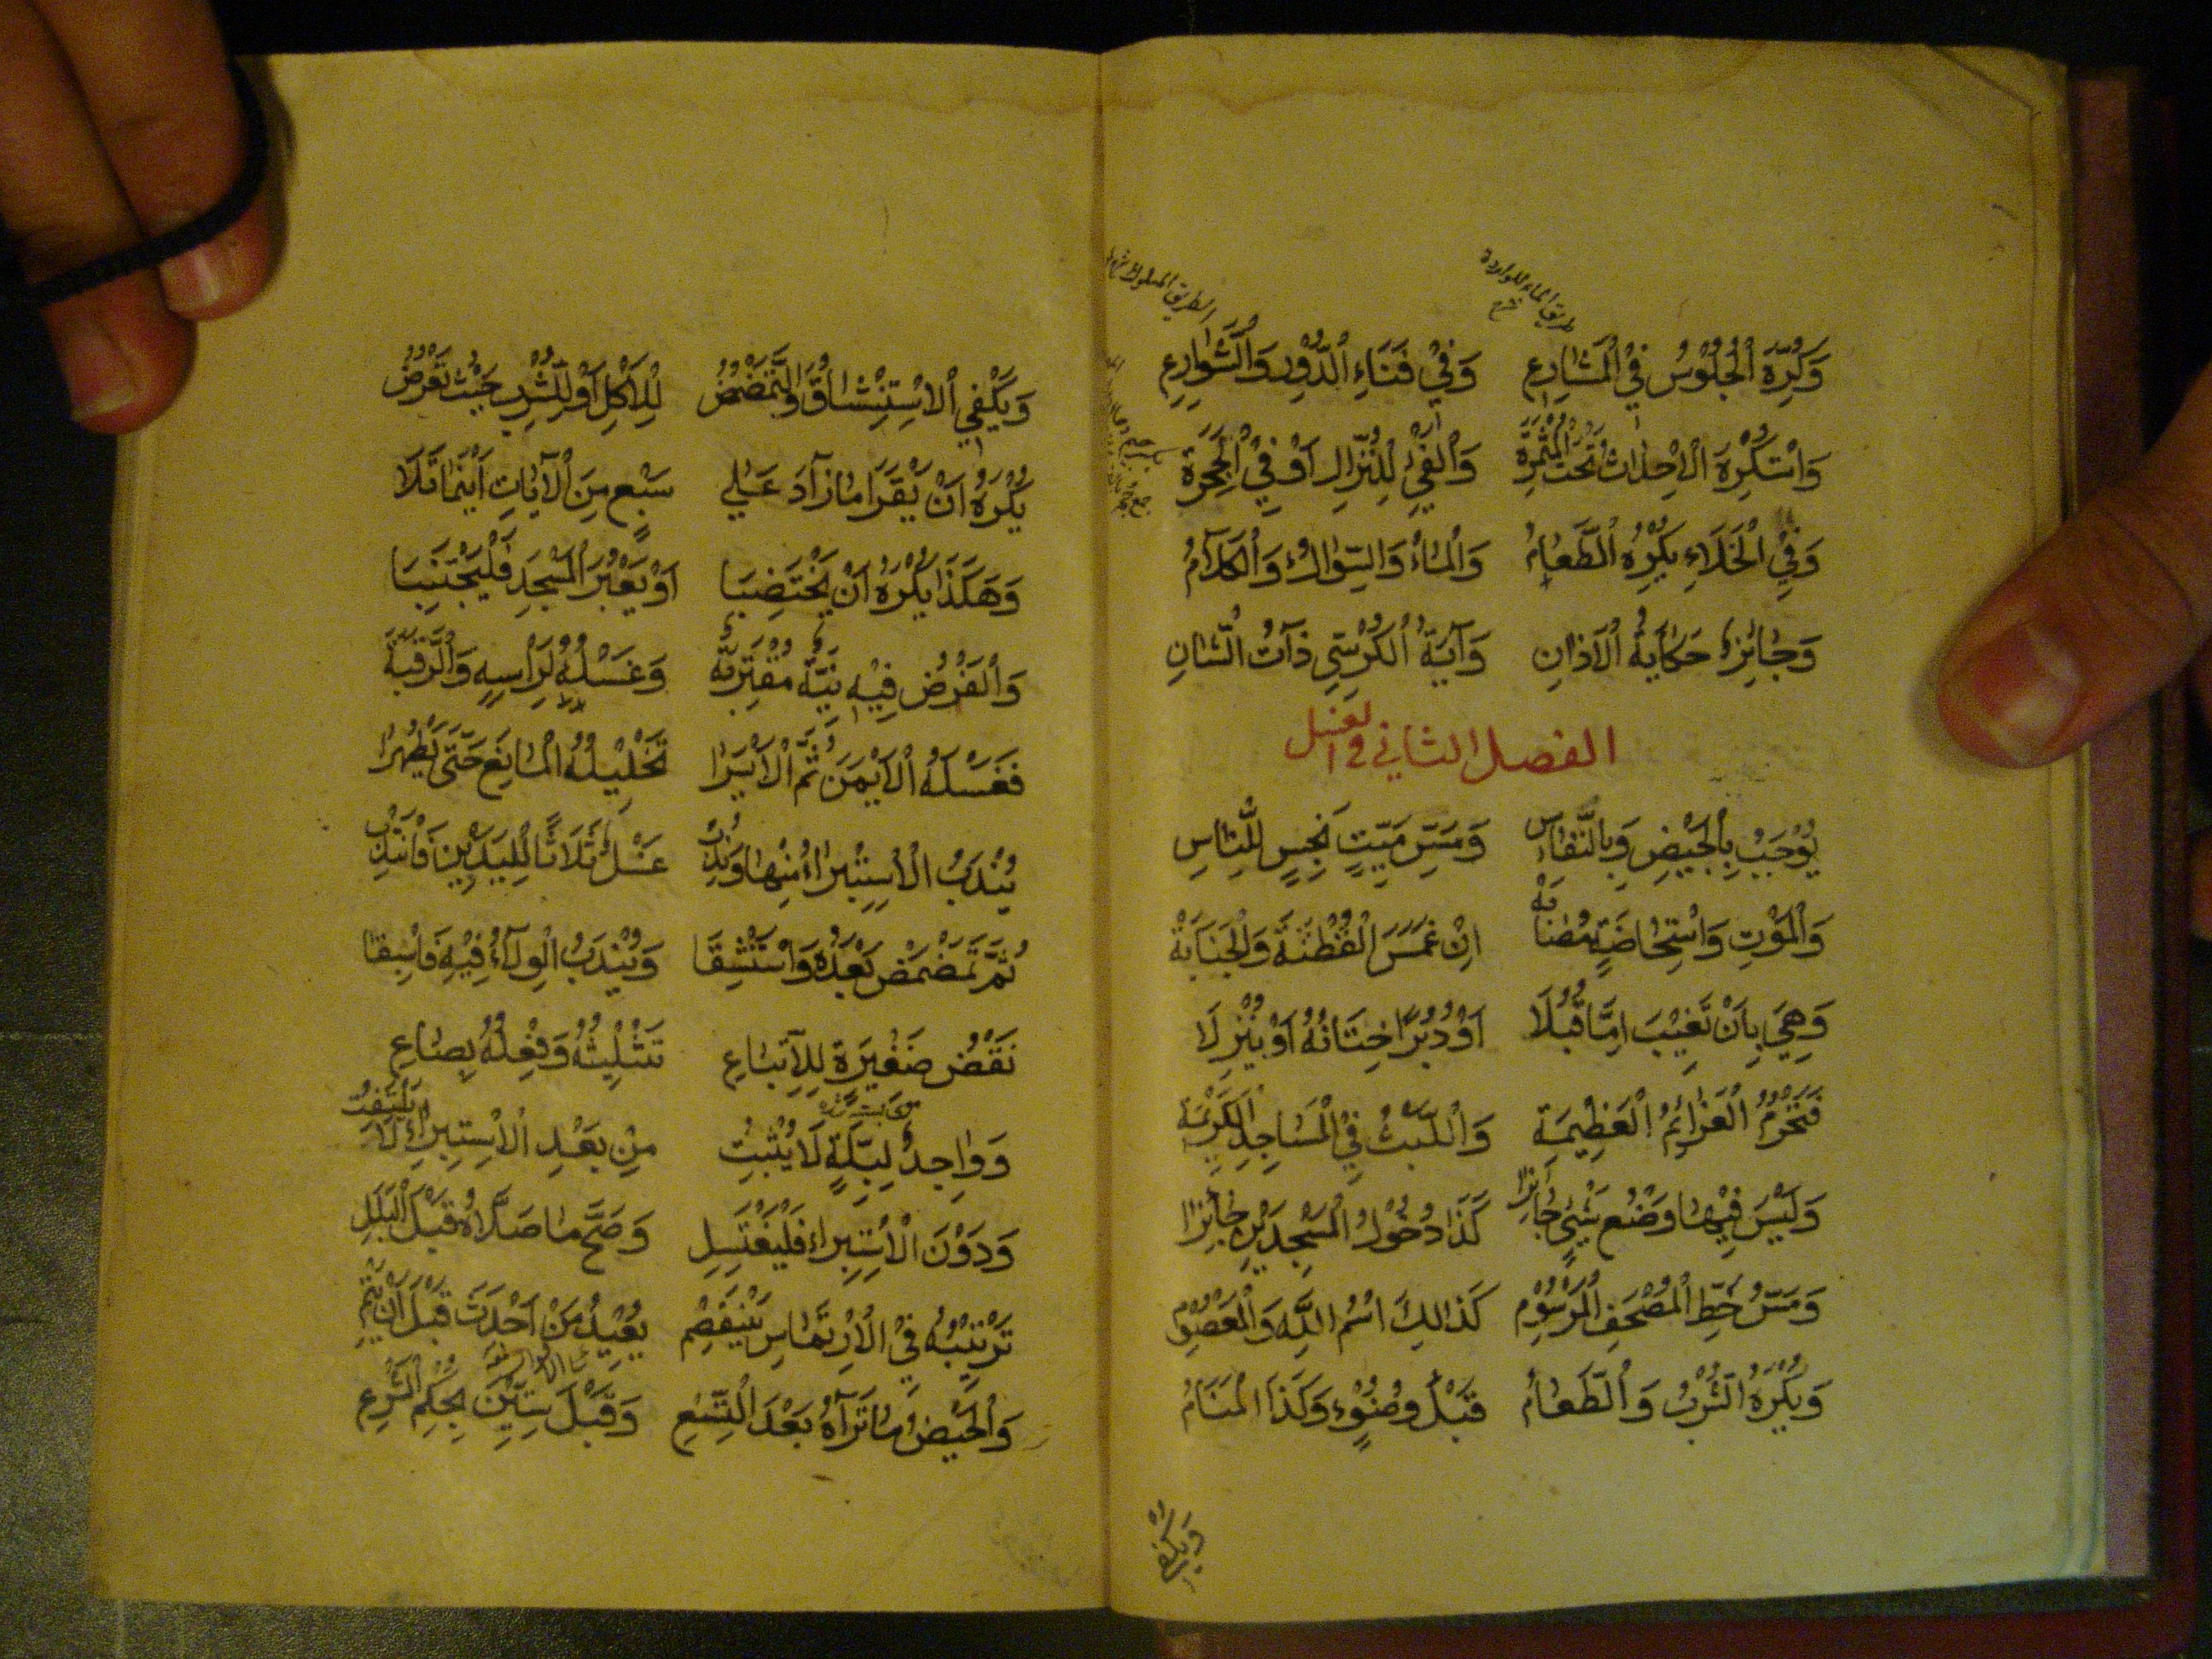 طريق الماء للواردة
الطريق المسلوك
وَكُرِّهَ الْجُلُوْسُ فِي الْمَشَارِعِ وَفِيْ فَنَاءِ الدُّوْرِ وَالشَّوَارِعِ
وَاسْتَكْرِهَ الْاِحْدَاثُ تَحْتَ الْمُثْمِرَةِ وَالْفَيْ لِلنُّزَّالِ اَوْ فِيْ الْجِحَرَةِ
وَفِيْ الْخَلَاءِ يُكْرَهُ الطَّعَامُ وَالْمَاءُ وَالسِّوَاكُ وَالْكَلَامُ
وَجَائِزٌ حَكَايَةُ الْاَذَانِ وَآيَةُ الْكُرْسِيِّ ذَآتُ الشَّانِ
الفصل الثاني في الغسل
يُوْجَبُ بِالْحَيْضِ وَبِالنِّفَاسِ وَمَسِّ مَيِّتٍ نَجِسٍ لِلنَّاسِ
وَالْمَوْتِ وَاسْتِحَاضَةٍ مُصَابَةْ اِنْ غَمَسَ الْقُطْنَةَ وَالْجَنَابَةْ
وَهِيَ بِاَنْ تَغِيْبَ اِمَّا قُبُلًا اَوْ دُبُرًا خِتَانُهُ اَوْ يُنْزِلَا
فَتَحْرُمُ الْعَزَائِمُ الْعَظِيْمَةِ وَاللَّبْثُ فِيْ الْمَسَاجِدِ الْكَرِيْمَةِ
وَلَيْسَ فِيْهَا وَضْعُ شَيْءٍ جَائِزًا كَذَا دُخُوْلُ الْمَسْجِدَيْنِ جَائِزًا
وَمَسُّ خَطِّ الْمُصْحَفِ الْمَرْسُوْمِ كَذَالِكَ اسْمُ اللّٰهِ وَالْمَعْصُوْمِ
وَيُكْرَهُ الشُّرْبُ وَالطَّعَامُ قَبْلَ وُضُوْءٍ وَكَذَا الْمَنَامُ
ويكفي
وَيَكْفِي الْاِسْتِنْشَاقُ وَالتَّمَضْمُضُ لِلْاَكْلِ اَوْ لِلشُّرْبِ حَيْثُ تَعْرِضُ
يُكْرَهُ اَنْ يَقْرَا مَا زَآدَ عَلٰي سَبْعٍ مِنَ الْآيَاتِ اَيْنَمَا تَلَا
وَهَكَذَا يُكْرَهُ اَنْ يَخْتَضِبَا اَوْ يَعْبُرَ الْمَسْجِدَ فَلْيَجْتَنِبَا
وَالْفَرْضُ فِيْهِ نِيَّةٌ مُقْتَرِبَةْ وَغَسْلُهُ لِرَاْسِهِ وَالرَّقَبَةْ
فَغَسْلُهُ الْاَيْمَنَ ثُمَّ الْاَيْسَرَا تَخْلِيْلُهُ الْمَانِعَ حَتّٰى يَطْهُرَا
يُنْدَبُ الْاِسْتِبْرَاءُ مِنْهَا وَنُدِبْ غَسْلٌ ثَلَاثًا لِلْيَدَيْنِ فَانْتَدِبْ
ثُمَّ تَمَضْمَضْ بَعْدَهُ وَاسْتَنْشِقَا وَيُنْدَبُ الْوِلَآءُ فِيْهِ فَاسْبِقَا
نَقْضُ ضَفِيْرَةٍ لِلْاِتْبَاعِ تَثْلِيْثُهُ وَفِعْلُهُ بِصَاعِ
وَوَاجِدٌ لِبَلَّةٍ لَا يُثْبِتُ مِنْ بَعْدِ الْاِسْتِبْرَاءِ لَا يَلْتَفِتُ
وَدَوْنَ الْاِسْتِبْرَاءِ فَلْيَغْتَسِلِ وَصَحَّ مَا صَلَّاهُ قَبْلَ الْبَلَلِ
تَرْتِيْبُهُ فِيْ الْاِرْتِمَاسِ يَنْفَصِمْ يُعِيْدُ مَنْ اَحْدَثَ قَبْلَ اَنْ يُتِمْ
وَالْحَيْضُ مَا تَرَآهُ بَعْدَ التِّسْعِ وَقَبْلَ سِتِّيْنَ بِحُكْمِ الشَّرْعِ